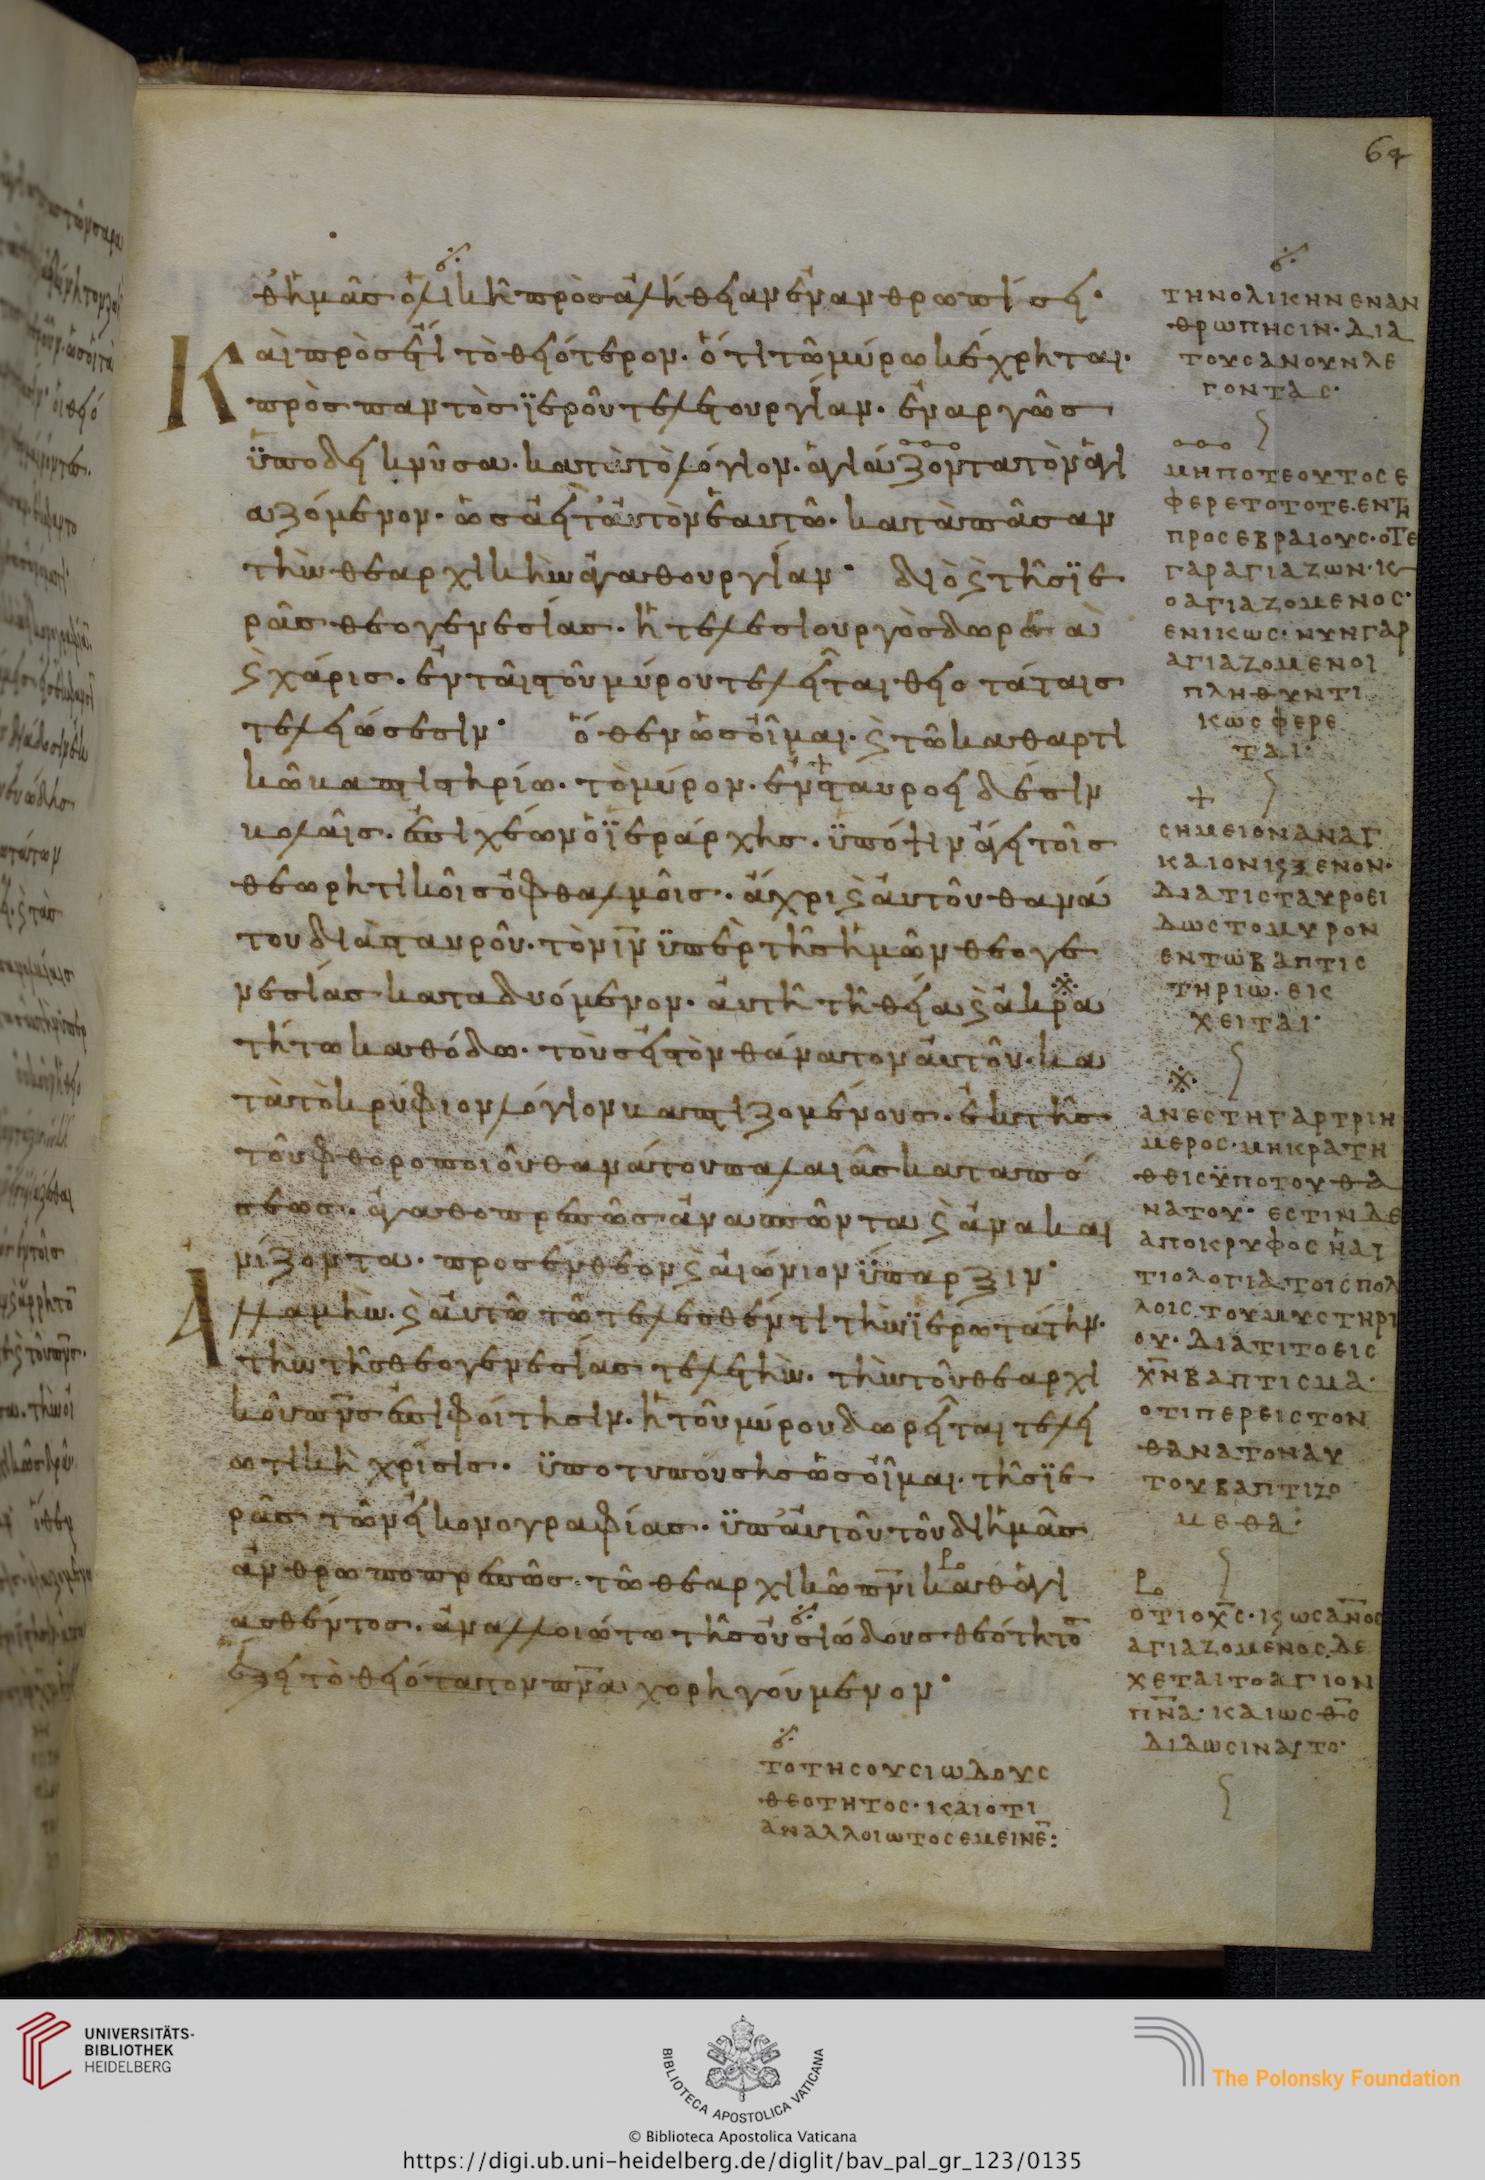 64
θ ἡμᾶς ὁλικῇ πρὸς ἀλήθειαν ἐνανθρωπίσει·
Καὶ πρόσει τὸ θειότερον. ὅτι τῶ μύρω κέχρηται.
πρὸς παντὸς ϊεροῦ τελετουργίαν. ἐναργῶς
ϋποδεικνῦσα. κατὰ τὸ λόγιον. ἁγιάζοντα τὸν ἁγι
αζόμενον. ὡς ἀεὶ ταυτὸν ἑαυτῶ. κατὰ πᾶσαν
τὴν θεαρχικὴν ἀγαθουργίαν· διὸ ϗ τῆς ϊε
ρᾶς θεογενεσίας. ἡ τελεσιουργὸς δωρεὰ
ϗ χάρις. ἐν ταῖς τοῦ μύρου τελεῖται θειοτάταις
τελειώσεσιν· ὅθεν ὡς οἶμαι. ϗ τῶ καθαρτι
κῶ βαπτιστηρίω. τὸ μύρον. ἐν σταυροειδέσιν
βολαῖς. ἐπιχέων ὁ ϊεράρχης. ϋπόψιν ἄγει τοῖς
θεωρητικοῖς ὀφθαλμοῖς. ἄχρι ϗ αὐτοῦ θανά
του διὰ σταυροῦ. τὸν ιν ϋπὲρ τῆς ἡμῶν θεογε
νεσίας καταδυόμενον. αὐτῆ τῆ θεία ϗ ἀκρα
τήτω καθόδω. τοὺς εἰς τὸν θάνατον αὐτοῦ. κα
τὰ τὸ κρύφιον λόγιον βαπτιζομένους. ἐκ τῆς
τοῦ φθοροποιοῦ θανάτου παλαιᾶς καταπό
σεως. ἀγαθοπρεπῶς ἀνασπῶντα ϗ ἀνακαι
νίζοντα. πρὸς ἔνθεον ϗ αἰώνιον ϋπαρξιν·
Ἀλλὰ μὴν. ϗ αὐτῶ τῶ τελεσθέντι τὴν ϊερωτάτην.
τὴν τῆς θεογενεσίας τελετὴν. τὴν τοῦ θεαρχι
κοῦ πνς ἐπιφοίτησιν. ἡ τοῦ μύρου δωρεῖται τελει
ωτικὴ χρίσις. ϋποτυπούσης ὡς οἶμαι. τῆς ϊε
ρᾶς τῶν εἰκονογραφίας. ϋπ' αὐτοῦ τοῦ δι ἡμᾶς
ἀνθρωποπρεπῶς. τῶ θεαρχικῶ πνι καθαγι
ασθέντος. ἀναλλοιώτω τῆς οὐσιώδους θεότητος
ἕξει τὸ θειότατον πνα χορηγούμενον·
ΤΗΝΟΛΙΚΗΝΕΝΑΝ
ΘΡΩΠΗCΙΝ· ΔΙΑ
ΤΟΥCΑΝΟΥΝΛΕ
ΓΟΝΤΑC·
ΜΗΠΟΤΕΟΥΤΟCΕ
ΦΕΡΕΤΟΤΟΤΕ·ΕΝΤΗ
ΠΡΟCΕΒΡΑΙΟΥC·ΟΤΕ
ΓΑΡΑΓΙΑΖΩΝ·Κ
ΟΑΓΙΑΖΟΜΕΝΟC·
ΕΝΙΚΩC· ΝΥΝΓΑΡ
ΑΓΙΑΖΟΜΕΝΟΙ
ΠΛΗΘΥΝΤΙ
ΚΩCΦΕΡΕ
ΤΑΙ·
CΗΜΕΙΟΝΑΝΑΓ
ΚΑΙΟΝΚϚΞΕΝΟΝ·
ΔΙΑΤΙCΤΑΥΡΟΕΙ
ΔΩCΤΟΜΥΡΟΝ
ΕΝΤΩΒΑΠΤΙC
ΤΗΡΙΩ. ΕΙC
ΧΕΙΤΑΙ·
ΑΝΕCΤΗΓΑΡΤΡΙΗ
ΜΕΡΟC·ΜΗΚΡΑΤΗ
ΘΕΙCΫΠΟΤΟΥΘΑ
ΝΑΤΟΥ· ΕCΤΙΝΔΕ
ΑΠΟΚΡΥΦΟCΗΑΙ
ΤΙΟΛΟΓΙΑΤΟΙCΠΟΛ
ΛΟΙC.ΤΟΥΜΥCΤΗΡΙ
ΟΥ· ΔΙΑΤΙΤΟΕΙC
ΧΝΒΑΠΤΙCΜΑ·
ΟΤΙΠΕΡΕΙCΤΟΝ
ΘΑΝΑΤΟΝΑΥ
ΤΟΥΒΑΠΤΙΖΟ
ΜΕΘΑ·
ΟΤΙΟΧC·ΚϚΩCΑΝΟC
ΑΓΙΑΖΟΜΕΝΟC.ΔΕ
ΧΕΤΑΙΤΟΑΓΙΟΝ
ΠΝΑ· ΚΑΙΩCΘC
ΔΙΔΩCΙΝΑΥΤΟ·
ΤΟΤΗCΟΥCΙΩΔΟΥC
ΘΕΟΤΗΤΟC· ΚΑΙΟΤΙ
ΑΝΑΛΛΟΙΩΤΟCΕΜΕΙΝΕ:
UNIVERSITÄTS-
BIBLIOTHEK
HEIDELBERG
BIBLIOTECA APOSTOLICA VATICANA
The Polonsky Foundation
© Biblioteca Apostolica Vaticana
https://digi.ub.uni-heidelberg.de/diglit/bav_pal_gr_123/0135